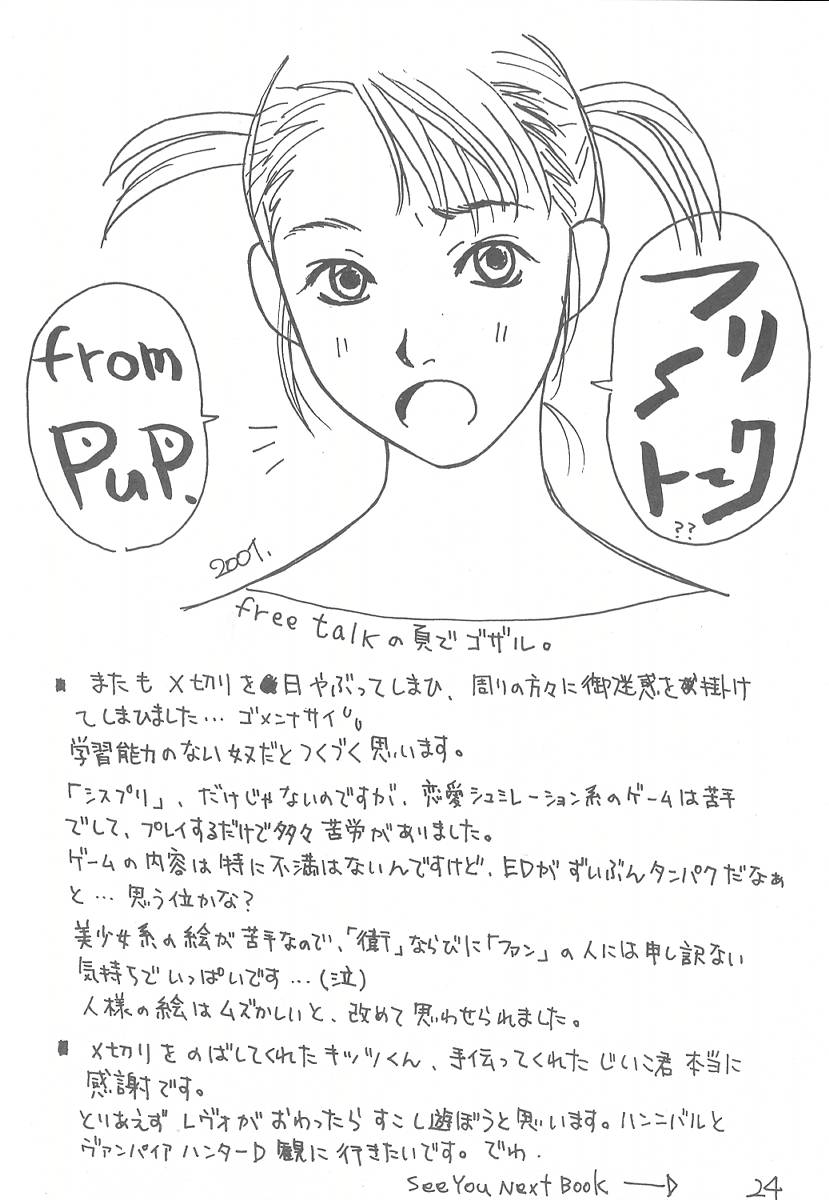 フリートーク
??
from
PuP.
2001.
free talkの頁でゴザル。
■ またも〆切りを日やぶってしまひ、周りの方々に御迷惑を掛け
てしまひました… ゴメンナサイ
学習能力のない奴だとつくづく思います。
「シスプリ」、だけじゃないのですが、恋愛シュミレーション系のゲームは苦手
でして、プレイするだけで多々苦労がありました。
ゲームの内容は特に不満はないんですけど、EDがずいぶんタンパクだなぁ
と… 思う位かな?
美少女系の絵が苦手なので、「衛」ならびに「ファン」の人には申し訳ない
気持ちでいっぱいです…(泣)
人様の絵はムズかしいと、改めて思わせられました。
■ 〆切りをのばしてくれたキッツくん、手伝ってくれたじいこ君本当に
感謝です。
とりあえずレヴォがおわったらすこし遊ぼうと思います。ハンニバルと
ヴァンパイアハンターD観に行きたいです。でわ.
See You Next Book
24